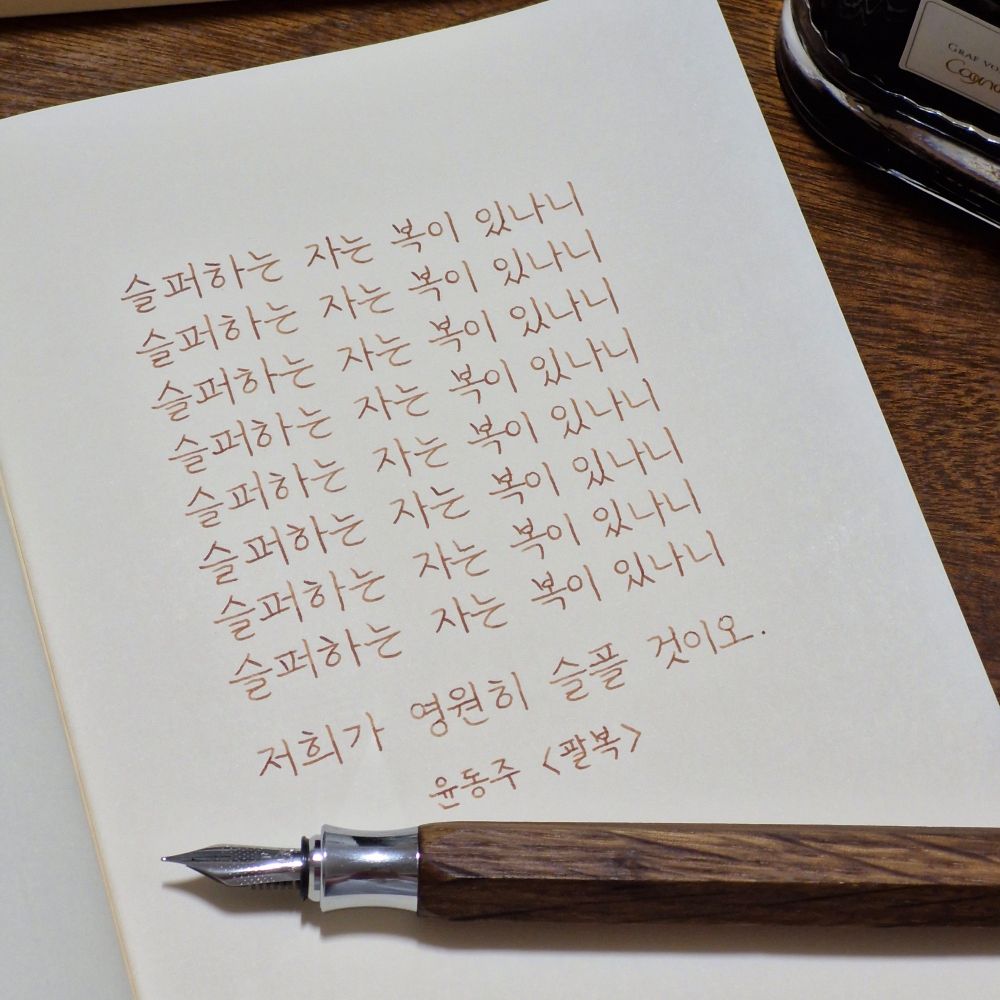 GRAF VO
Cogn
슬퍼하는 자는 복이 있나니
슬퍼하는 자는 복이 있나니
슬퍼하는 자는 복이 있나니
슬퍼하는 자는 복이 있나니
슬퍼하는 자는 복이 있나니
슬퍼하는 자는 복이 있나니
슬퍼하는 자는 복이 있나니
슬퍼하는 자는 복이 있나니
저희가 영원히 슬플 것이오.
윤동주 <팔복>